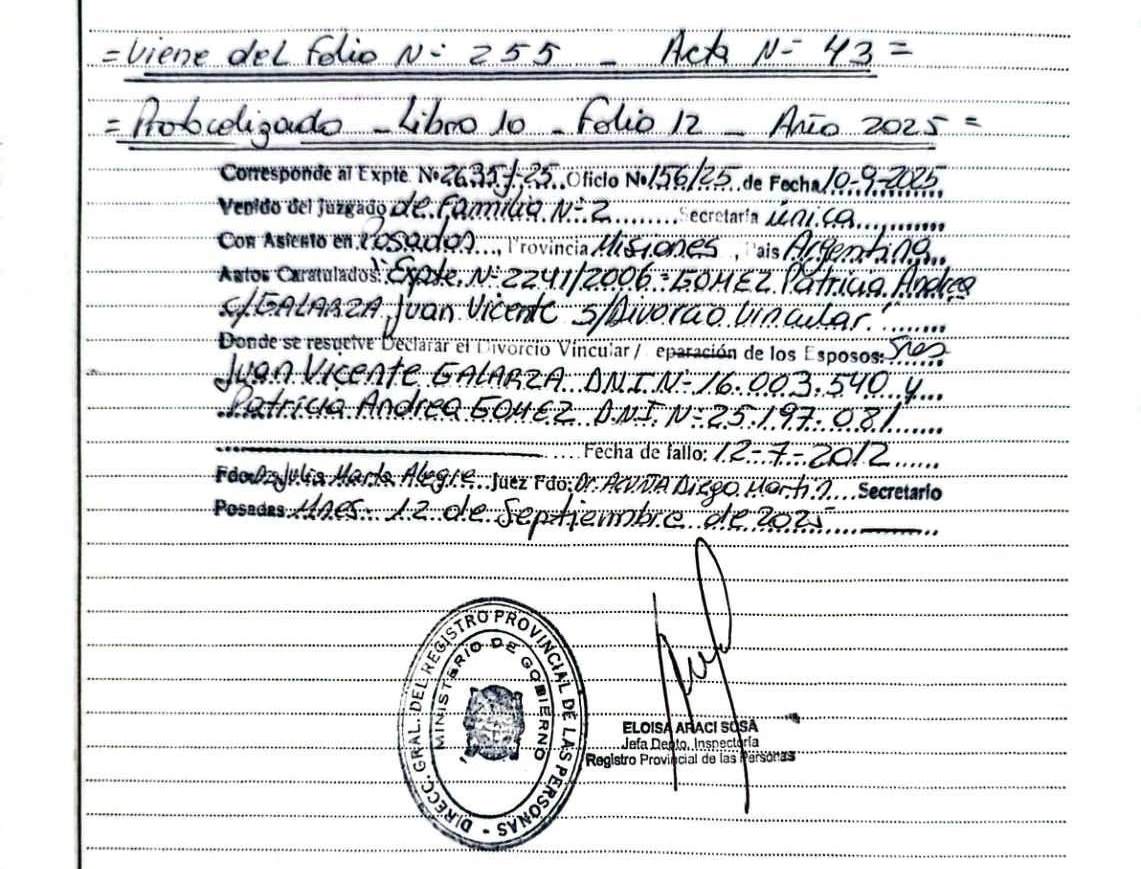 = Viene del Folio Nº 255 - Acta Nº 43 =
= Protocolizado - Libro 10 - Folio 12 - Año 2025 =
Corresponde al Expte. Nº 2635/-25.. Oficio Nº 156/25. de Fecha 10-9-2025
Venido del Juzgado de Familia Nº 2....... Secretaría única.........
Con Asiento en Posadas..., Provincia Misiones, Pais Argentina..
Autos Caratulados: "Expte. Nº 2241/2006 = GOMEZ Patricia Andrea
c/GALARZA Juan Vicente s/Divorcio Vincular."........
Donde se resuelve Declarar el Divorcio Vincular / eparación de los Esposos: Sres
Juan Vicente GALARZA D.N.I. Nº 16.003.540 y...
Patricia Andrea GOMEZ D.N.I. Nº 25.197.081......
..... Fecha de fallo: 12-7-2012......
Fdo: Dra Julia Marta Alegre.. Juez Fdo: Dr. ACUÑA Diego Martin.... Secretario
Posadas Mnes. 12 de Septiembre de 2025
DIRECC. GRAL. DEL REGISTRO PROVINCIAL DE LAS PERSONAS -
MINISTERIO DE GOBIERNO
ELOISA ARACI SOSA
Jefa Depto. Inspectoría
Registro Provincial de las Personas